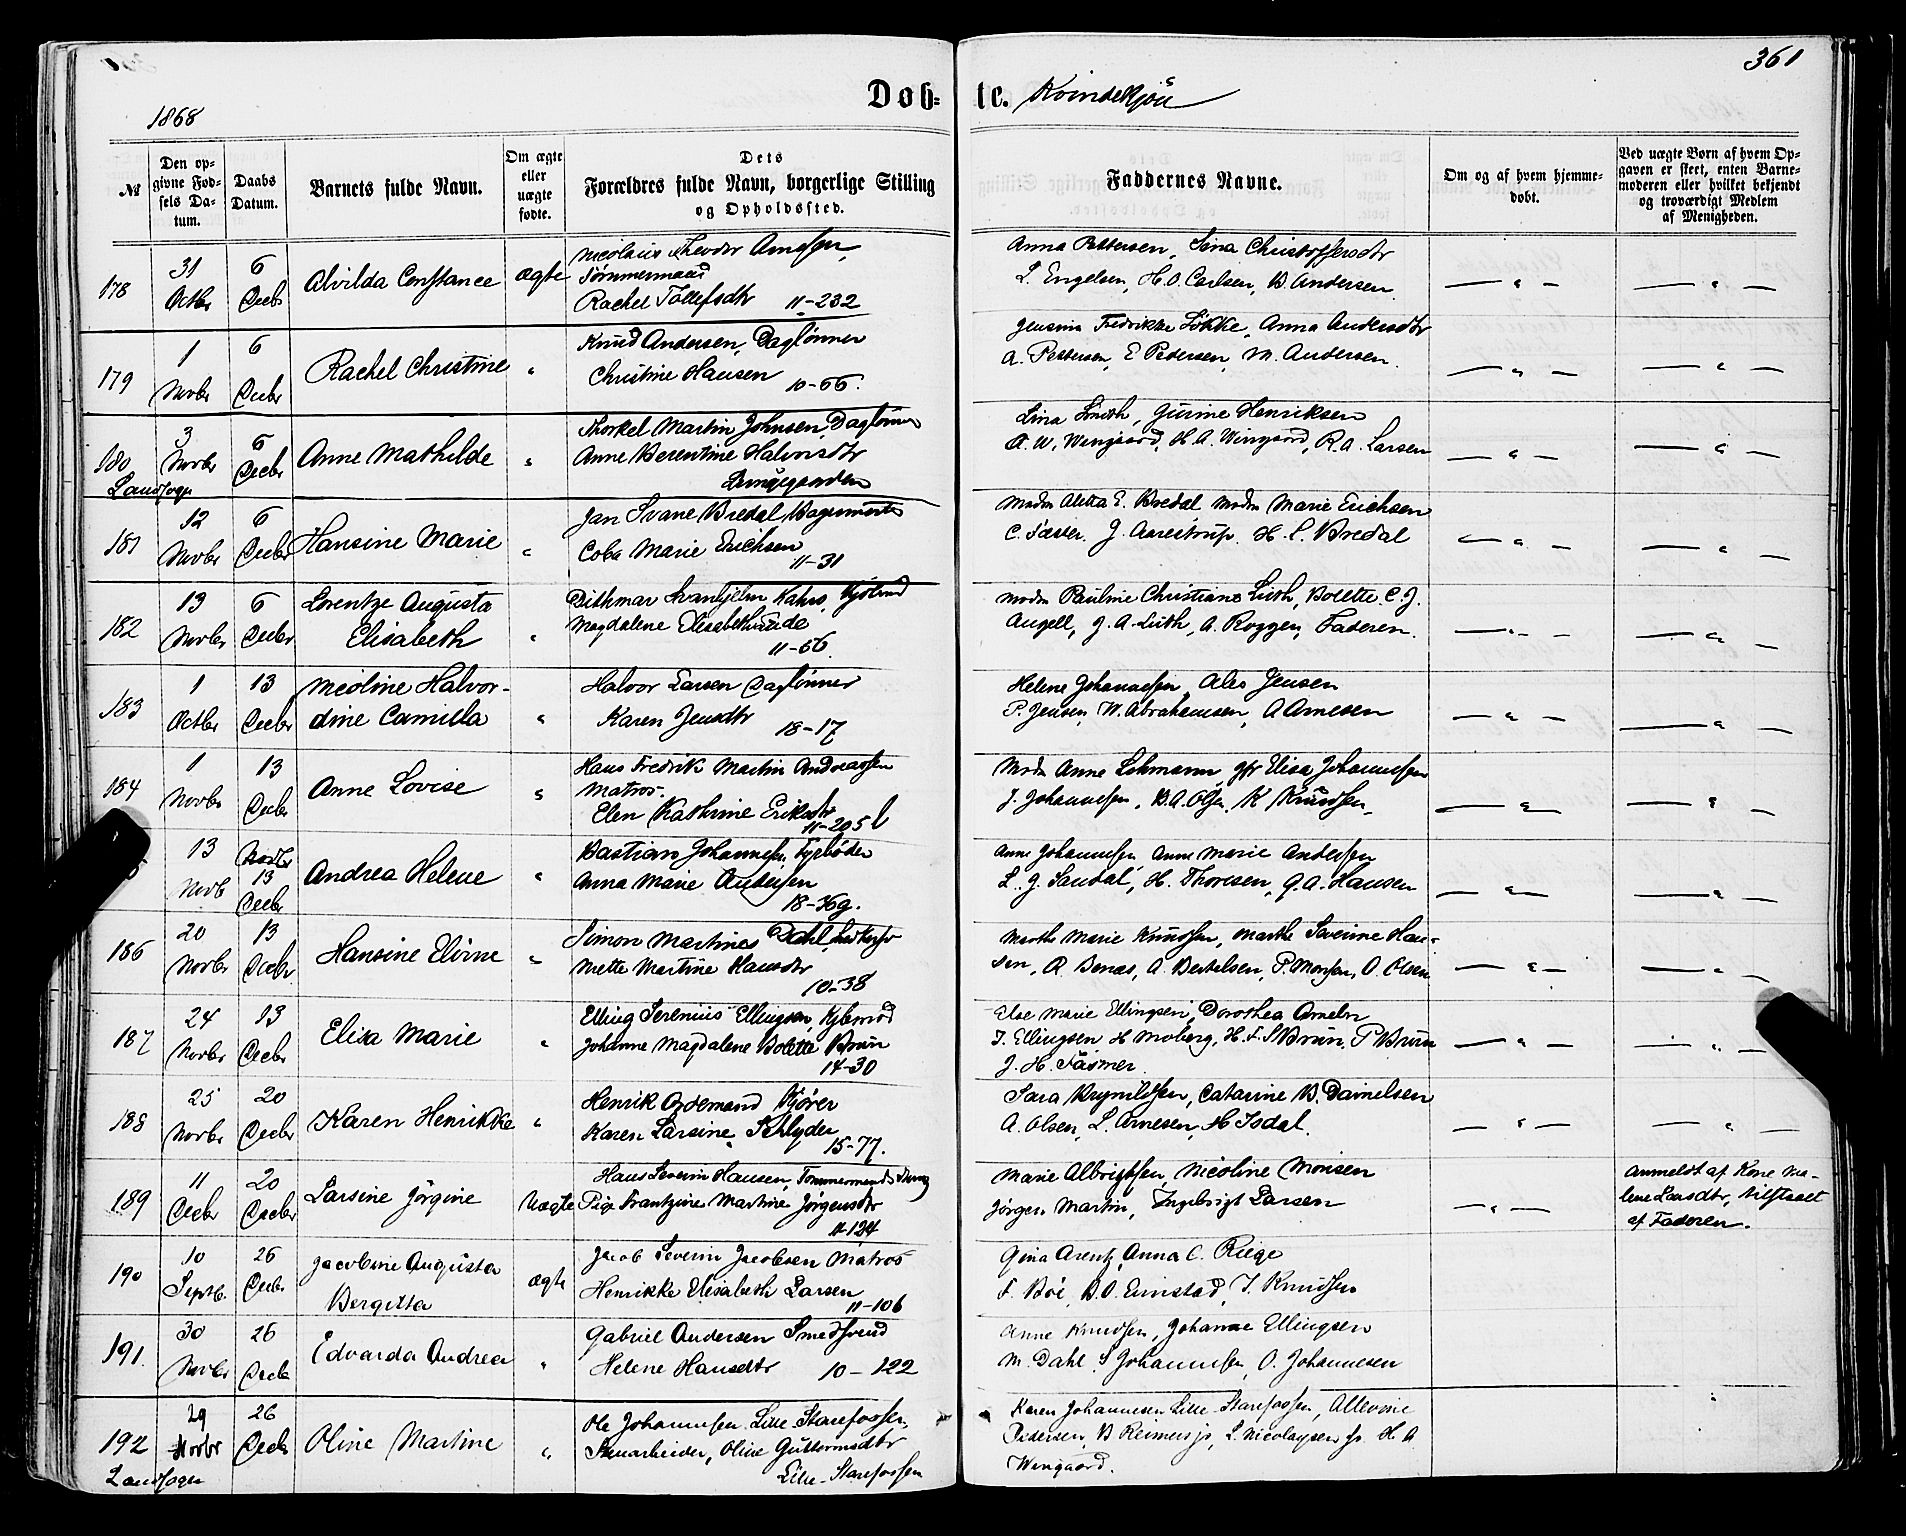 361
Døb- te. Kvindekjøn
1868
№
Den op-
givne Fød-
sels Da-
tum.
Daabs
Datum.
Barnets fulde Navn.
Om ægte
eller
uægte
fødte.
Dets
Forældres fulde Navn, borgerlige Stilling
og Opholdssted.
Faddernes Navne.
Om og af hvem hjemme-
døbt.
Ved uægte Børn af hvem Op-
gaven er skeet, enten Barne-
moderen eller hvilket bekjendt
og troværdigt Medlem
af Menigheden.
178 31 Octbr 6 Decbr Alvilda Constance ægte
Nicolaus Theodor Arnesen,
Tømmermand
Rachel Tollefsdtr 11-232
Anna Pettersen, Sina Christoffersdtr
L. Engelsen, H. O. Carlsen, B. Andersen
179 1 Novbr 6 Decbr Rachel Christine "
Knud Andersen, Daglønner
Christine Hansen 10-66.
Jensine Fredrikke Løkke, Anna Andersdtr
A. Pettersen, E Pedersen, M. Andersen
180 3 Novbr 6 Decbr Anne Mathilde "
Landsogn
Thorkel Martin Johnsen, Dagløner
Anne Berentine Halvorsdtr
Lungegaarden
Lina Smith, Gurine Henriksen
A. W. Wingaard, H. A. Wingaard, R. A. Larsen
181 12 Novbr 6 Decbr Hansine Marie "
Jan Svane Bredal, Bagermester
Coba Marie Erichsen
11-31
Madm Aletta E. Bredal Madm Marie Erichsen
C. Fæster. J. Aarestrup. H. L. Bredal
182 13 Novbr 6 Decbr Lorentze Augusta
Elisabeth "
Dithmar Kahrs, Kjøbmd
Magdalene Elisabeth Unde
11-66.
Madm Pauline Christiane Luth, Bolette C. J.
Angell, J. A. Luth, A. Roggen, Faderen.
183 1 Octbr 13 Decbr Nicoline Halvor-
dine Camilla "
Halvor Larsen Daglønner
Karen Jensdtr 18-17
Helene Johannesen, Ales Jensen
P. Jensen, W. Abrahamsen, A Arnesen
184 1 Novbr 13 Decbr Anne Lovise "
Hans Fredrik Martin Andreassen
Matros.
Elen Kathrine Eriksdtr
11-205 b
Madm Anne Lehmann, gfr Elisa Johannesen
J. Johannesen, B. A. Olsen, K Knudsen,
13 Novb 13 Decbr Andrea Helene "
Bastian Johannesen, Fyrbøder
Anna Marie Andersen
18-36g.
Anne Johannesen, Anne Marie Andersen
L. J. Sandal, H. Thoresen, G. A. Hansen
186 20 Novbr 13 Decbr Hansine Elvine "
Simon Martines Dahl,
Mette Martine Hansdtr
10-38
Marthe Marie Knudsen, Marthe Severine Han-
sen, R. Benæs, A. Bertelsen, P. Monsen, O. Olsen
187 24 Novbr 13 Decbr Elisa Marie "
Elling Serenius Ellingsen, Kjøbmd
Johanne Magdalene Bolette Brun
14-30
Else Marie Ellingsen, Dorothea Ameln
I. Ellingsen H Moberg, H. F. S Brun, P Brun
J. H. Fasmer.
188 25 Novbr 20 Decbr Karen Henrikke "
Henrik Ordemand Kjører
Karen Larsine Schlyder
15-77.
Sara Brynildsen, Catarine B. Danielsen
A. Olsen, L. Arnesen, H Isdal
189 11 Decbr 20 Decbr Larsine Jørgine Uægte
Hans Severin Hansen, Tømmermands
Pige Frantzine Martine Jørgensdtr
11-124
Marie Albrigtsen, Nicoline Monsen
Jørgen Martin, Ingebrigt Larsen
Anmeldt af Kone Ma-
lene Larsdtr, tilstaaet
af Faderen.
190 10 Septb. 26 Decbr Jacobine Augusta
Bergitta ægte
Jacob Severin Jacobsen Matros
Henrikke Elisabeth Larsen
11-106
Gina Arentz, Anna C. Riege
F. Bøe, B. O. Eimstad, I. Knudsen
191. 30 Novbr 26 Decb Edvarda Andrea "
Gabriel Andersen Smedsvend
Helene Hansdtr 10-122
Anne Knudsen, Johanne Ellingsen
M. Dahl. S Johannesen, O. Johannesen
192 29 Novbr 26 Decb Oline Martine "
Landsogn
Ole Johannesen Lille-Starefossen
Stenarbeider, Oline Guttormsdtr
Lille-Starefossen
Karen Johannesen Lille-Starefossen, Allevine
Pedersen, B Reimers jr, L. Nicolaysen jr. H. A
Wingaard.